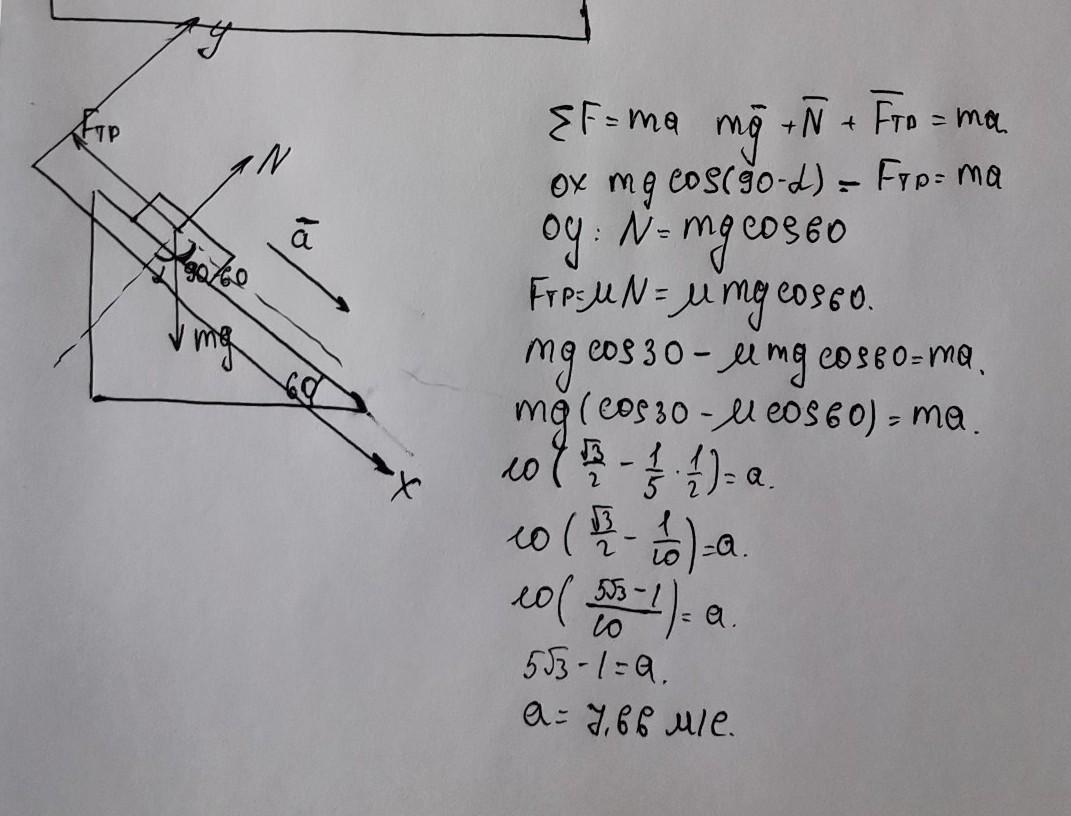 y
Fтр
N
a̅
90/60
mg
60
X
ΣF=ma mg̅ + N̅ + F̅тр = ma
ox mg cos(90-α) - Fтр = ma
oy: N = mg cos60
Fтр=μN = μmg cos60.
mg cos30 - μ mg cos60=ma.
mg(cos30 - μ cos60) = ma.
10(√3/2 - 1/5 · 1/2) = a.
10(√3/2 - 1/10)=a.
10(5√3-1/10)= a.
5√3-1=a.
a= 7,66 м/с.